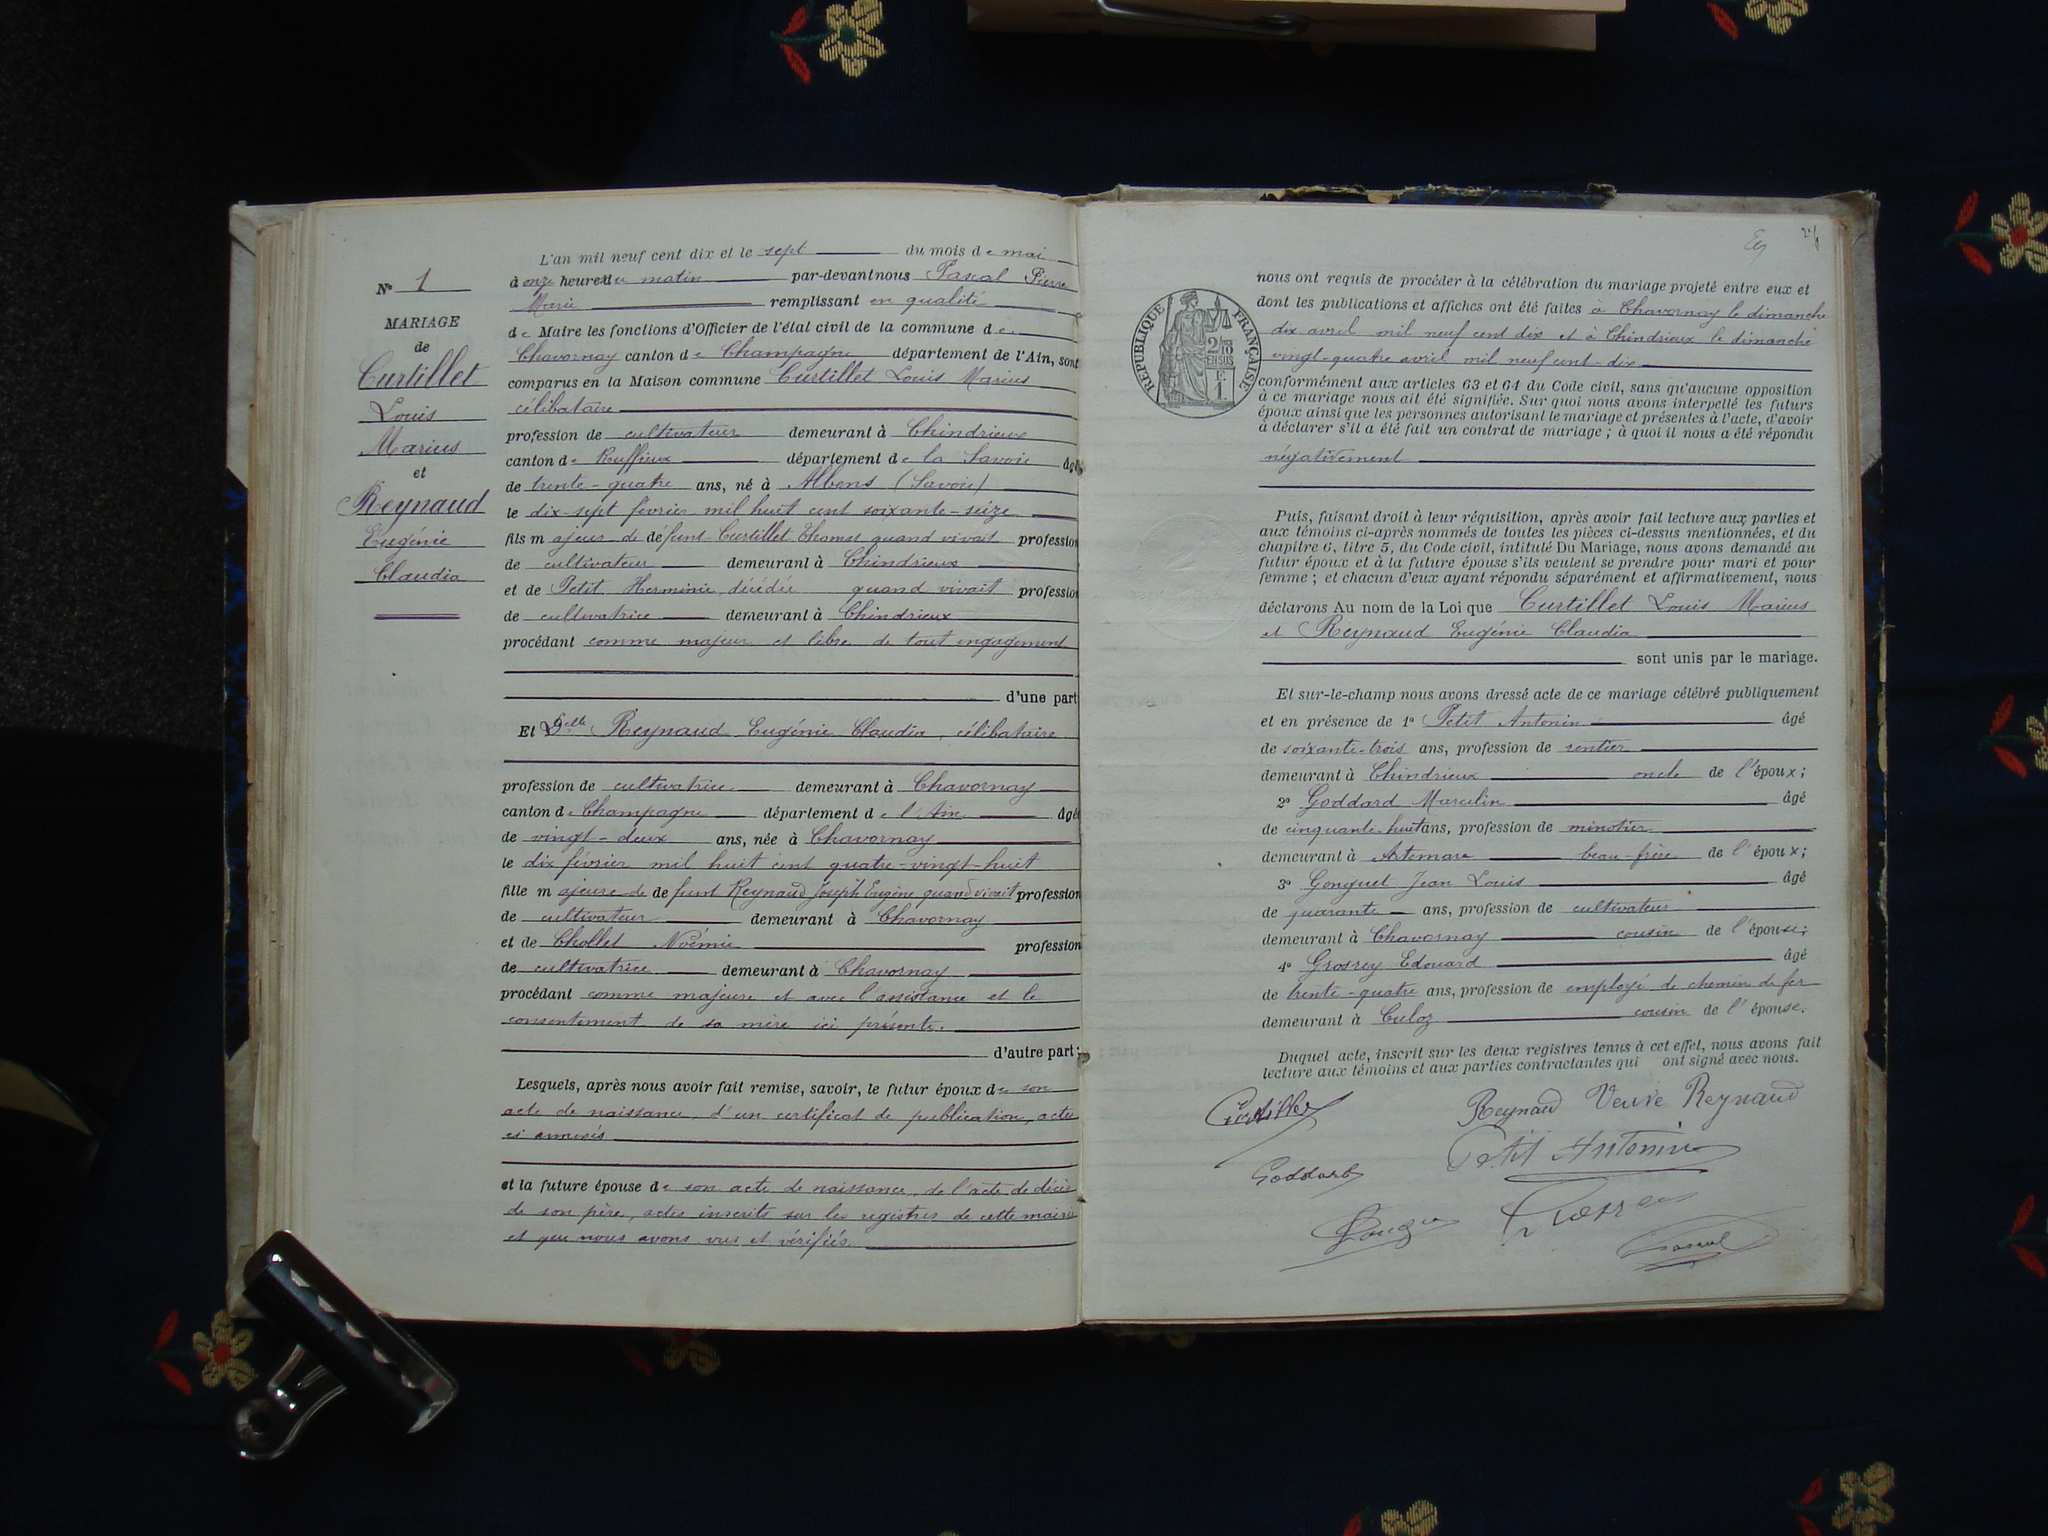 N° 1
MARIAGE
de
Curtillet
Louis
Marius
et
Reynaud
Eugénie
Claudia
L'an mil neuf cent dix et le sept du mois de mai
à onze heures du matin par-devant nous Pascal Pierre
Marie remplissant en qualité
de Maire les fonctions d'Officier de l'état civil de la commune de
Chavornay canton de Champagne département de l'Ain, sont
comparus en la Maison commune Curtillet Louis Marius
célibataire
profession de cultivateur demeurant à Chindrieux
canton de Ruffieux département de la Savoie âgé
de trente-quatre ans, né à Albens (Savoie)
le dix-sept février mil huit cent soixante-seize
fils majeur de défunt Curtillet Thomas quand vivait profession
de cultivateur demeurant à Chindrieux
et de Petit Herminie décédée quand vivait profession
de cultivatrice demeurant à Chindrieux
procédant comme majeur et libre de tout engagement
d'une part
Et Delle Reynaud Eugénie Claudia, célibataire
profession de cultivatrice demeurant à Chavornay
canton de Champagne département de l'Ain âgé
de vingt-deux ans, née à Chavornay
le dix février mil huit cent quatre-vingt-huit
fille majeure de défunt Reynaud Joseph Eugène quand vivait profession
de cultivateur demeurant à Chavornay
et de Chollet Noémie profession
de cultivatrice demeurant à Chavornay
procédant comme majeure et avec l'assistance et le
consentement de sa mère ici présente.
d'autre part;
Lesquels, après nous avoir fait remise, savoir, le futur époux de son
acte de naissance, d'un certificat de publication, actes
ci annexés
et la future épouse de son acte de naissance, de l'acte de décès
de son père, actes inscrits sur les registres de cette mairie
et que nous avons vus et vérifiés.
RÉPUBLIQUE FRANÇAISE
nous ont requis de procéder à la célébration du mariage projeté entre eux et
dont les publications et affiches ont été faites à Chavornay le dimanche
dix avril mil neuf cent dix et à Chindrieux le dimanche
vingt-quatre avril mil neuf cent-dix
conformément aux articles 63 et 64 du Code civil, sans qu'aucune opposition
à ce mariage nous ait été signifiée. Sur quoi nous avons interpellé les futurs
époux ainsi que les personnes autorisant le mariage et présentes à l'acte, d'avoir
à déclarer s'il a été fait un contrat de mariage; à quoi il nous a été répondu
négativement
Puis, faisant droit à leur réquisition, après avoir fait lecture aux parties et
aux témoins ci-après nommés de toutes les pièces ci-dessus mentionnées, et du
chapitre 6, titre 5, du Code civil, intitulé Du Mariage, nous avons demandé au
futur époux et à la future épouse s'ils veulent se prendre pour mari et pour
femme; et chacun d'eux ayant répondu séparément et affirmativement, nous
déclarons Au nom de la Loi que Curtillet Louis Marius
et Reynaud Eugénie Claudia
sont unis par le mariage.
Et sur-le-champ nous avons dressé acte de ce mariage célébré publiquement
et en présence de 1° Petit Antonin âgé
de soixante-trois ans, profession de rentier
demeurant à Chindrieux oncle de l'époux;
2° Goddard Marcelin âgé
de cinquante-huit ans, profession de minotier
demeurant à Artemare beau-frère de l'époux;
3° Gonguet Jean Louis âgé
de quarante ans, profession de cultivateur
demeurant à Chavornay cousin de l'épouse;
4° Grosrey Edouard âgé
de trente-quatre ans, profession de employé de chemin de fer
demeurant à Culoz cousin de l'épouse.
Duquel acte, inscrit sur les deux registres tenus à cet effet, nous avons fait
lecture aux témoins et aux parties contractantes qui ont signé avec nous.
Curtillet Reynaud Veuve Reynaud
Petit Antonin
Goddard
Pascal